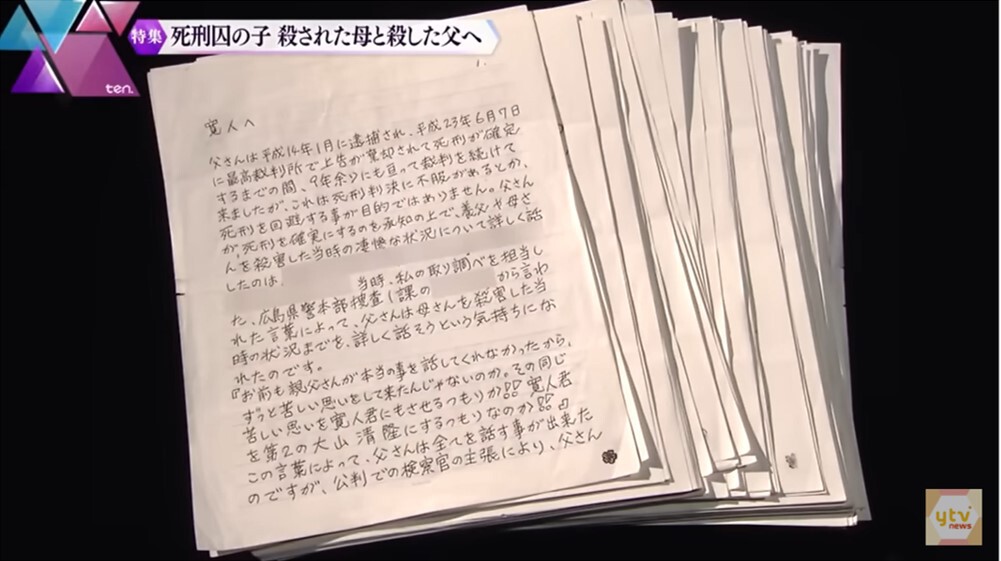 特集 死刑囚の子 殺された母と殺した父へ
ten.
寛人へ
父さんは平成14年1月に逮捕され、平成23年6月7日
に最高裁判所で上告が棄却されて死刑が確定
するまでの間、9年余りにも亘って裁判を続けて
来ましたが、これは死刑判決に不服があるとか、
死刑を回避する事が目的ではありません。父さん
が、死刑を確実にするのを承知の上で、義父や母さ
んを殺害した当時の凄惨な状況について詳しく話
したのは、
当時、私の取り調べを担当し
た、広島県警本部捜査1課の
から言わ
れた言葉によって、父さんは母さんを殺害した当
時の状況までを、詳しく話そうという気持ちにな
れたのです。
『お前も親父さんが本当の事を話してくれなかったから、
ずっと苦しい思いをして来たんじゃないのか。その同じ
苦しい思いを寛人君にもさせるつもりか!! 寛人君
を第2の大山清隆にするつもりなのか!!』
この言葉によって、父さんは全てを話す事が出来た
のですが、公判での検察官の主張により、父さん
ytv
news